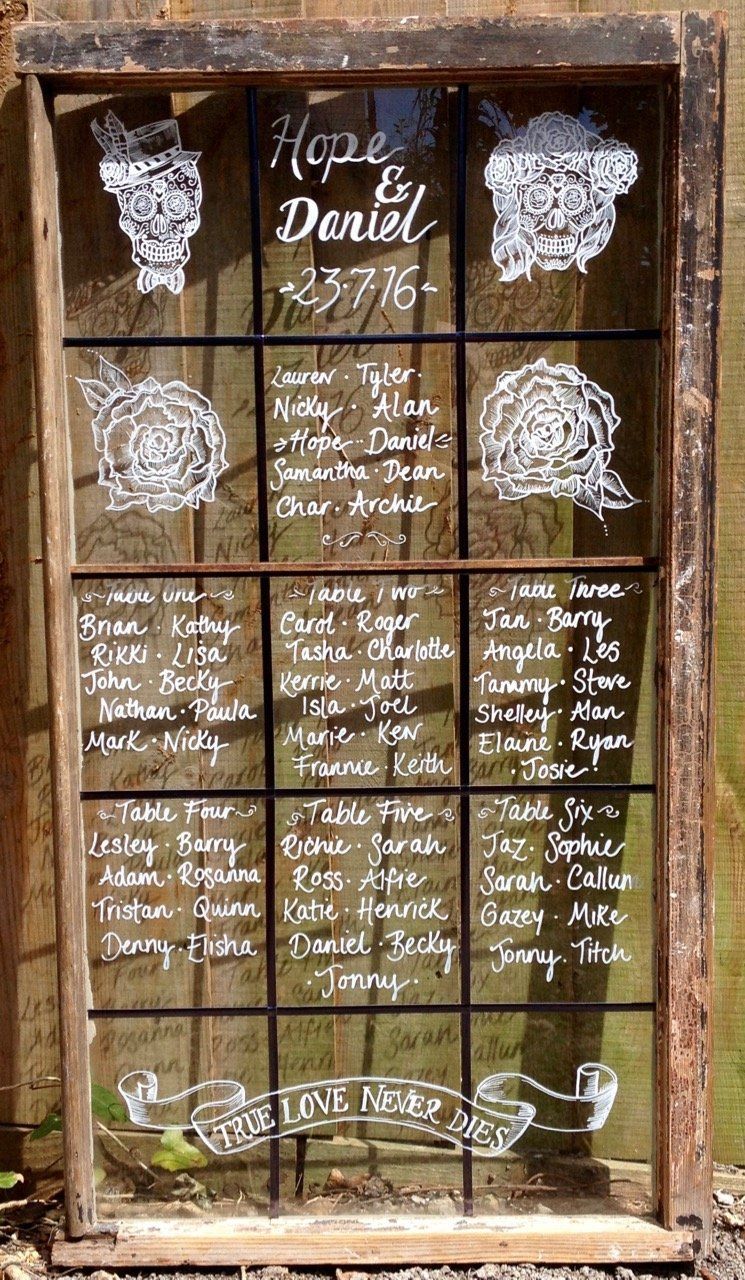 Hope
&
Daniel
23·7·16
Lauren · Tyler·
Nicky · Alan
Hope · Daniel
Samantha · Dean
Char · Archie
Table One
Brian · Kathy
Rikki · Lisa
John · Becky
Nathan · Paula
Mark · Nicky
Table Two
Carol · Roger
Tasha · Charlotte
Kerrie · Matt
Isla · Joel
Marie · Ken
Frannie · Keith
Table Three
Jan · Barry
Angela · Les
Tammy · Steve
Shelley · Alan
Elaine · Ryan
· Josie ·
Table Four
Lesley · Barry
Adam · Rosanna
Tristan · Quinn
Denny · Elisha
Table Five
Richie · Sarah
Ross · Alfie
Katie · Henrick
Daniel · Becky
· Jonny ·
Table Six
Jaz · Sophie
Sarah · Callum
Gazey · Mike
Jonny · Titch
TRUE LOVE NEVER DIES